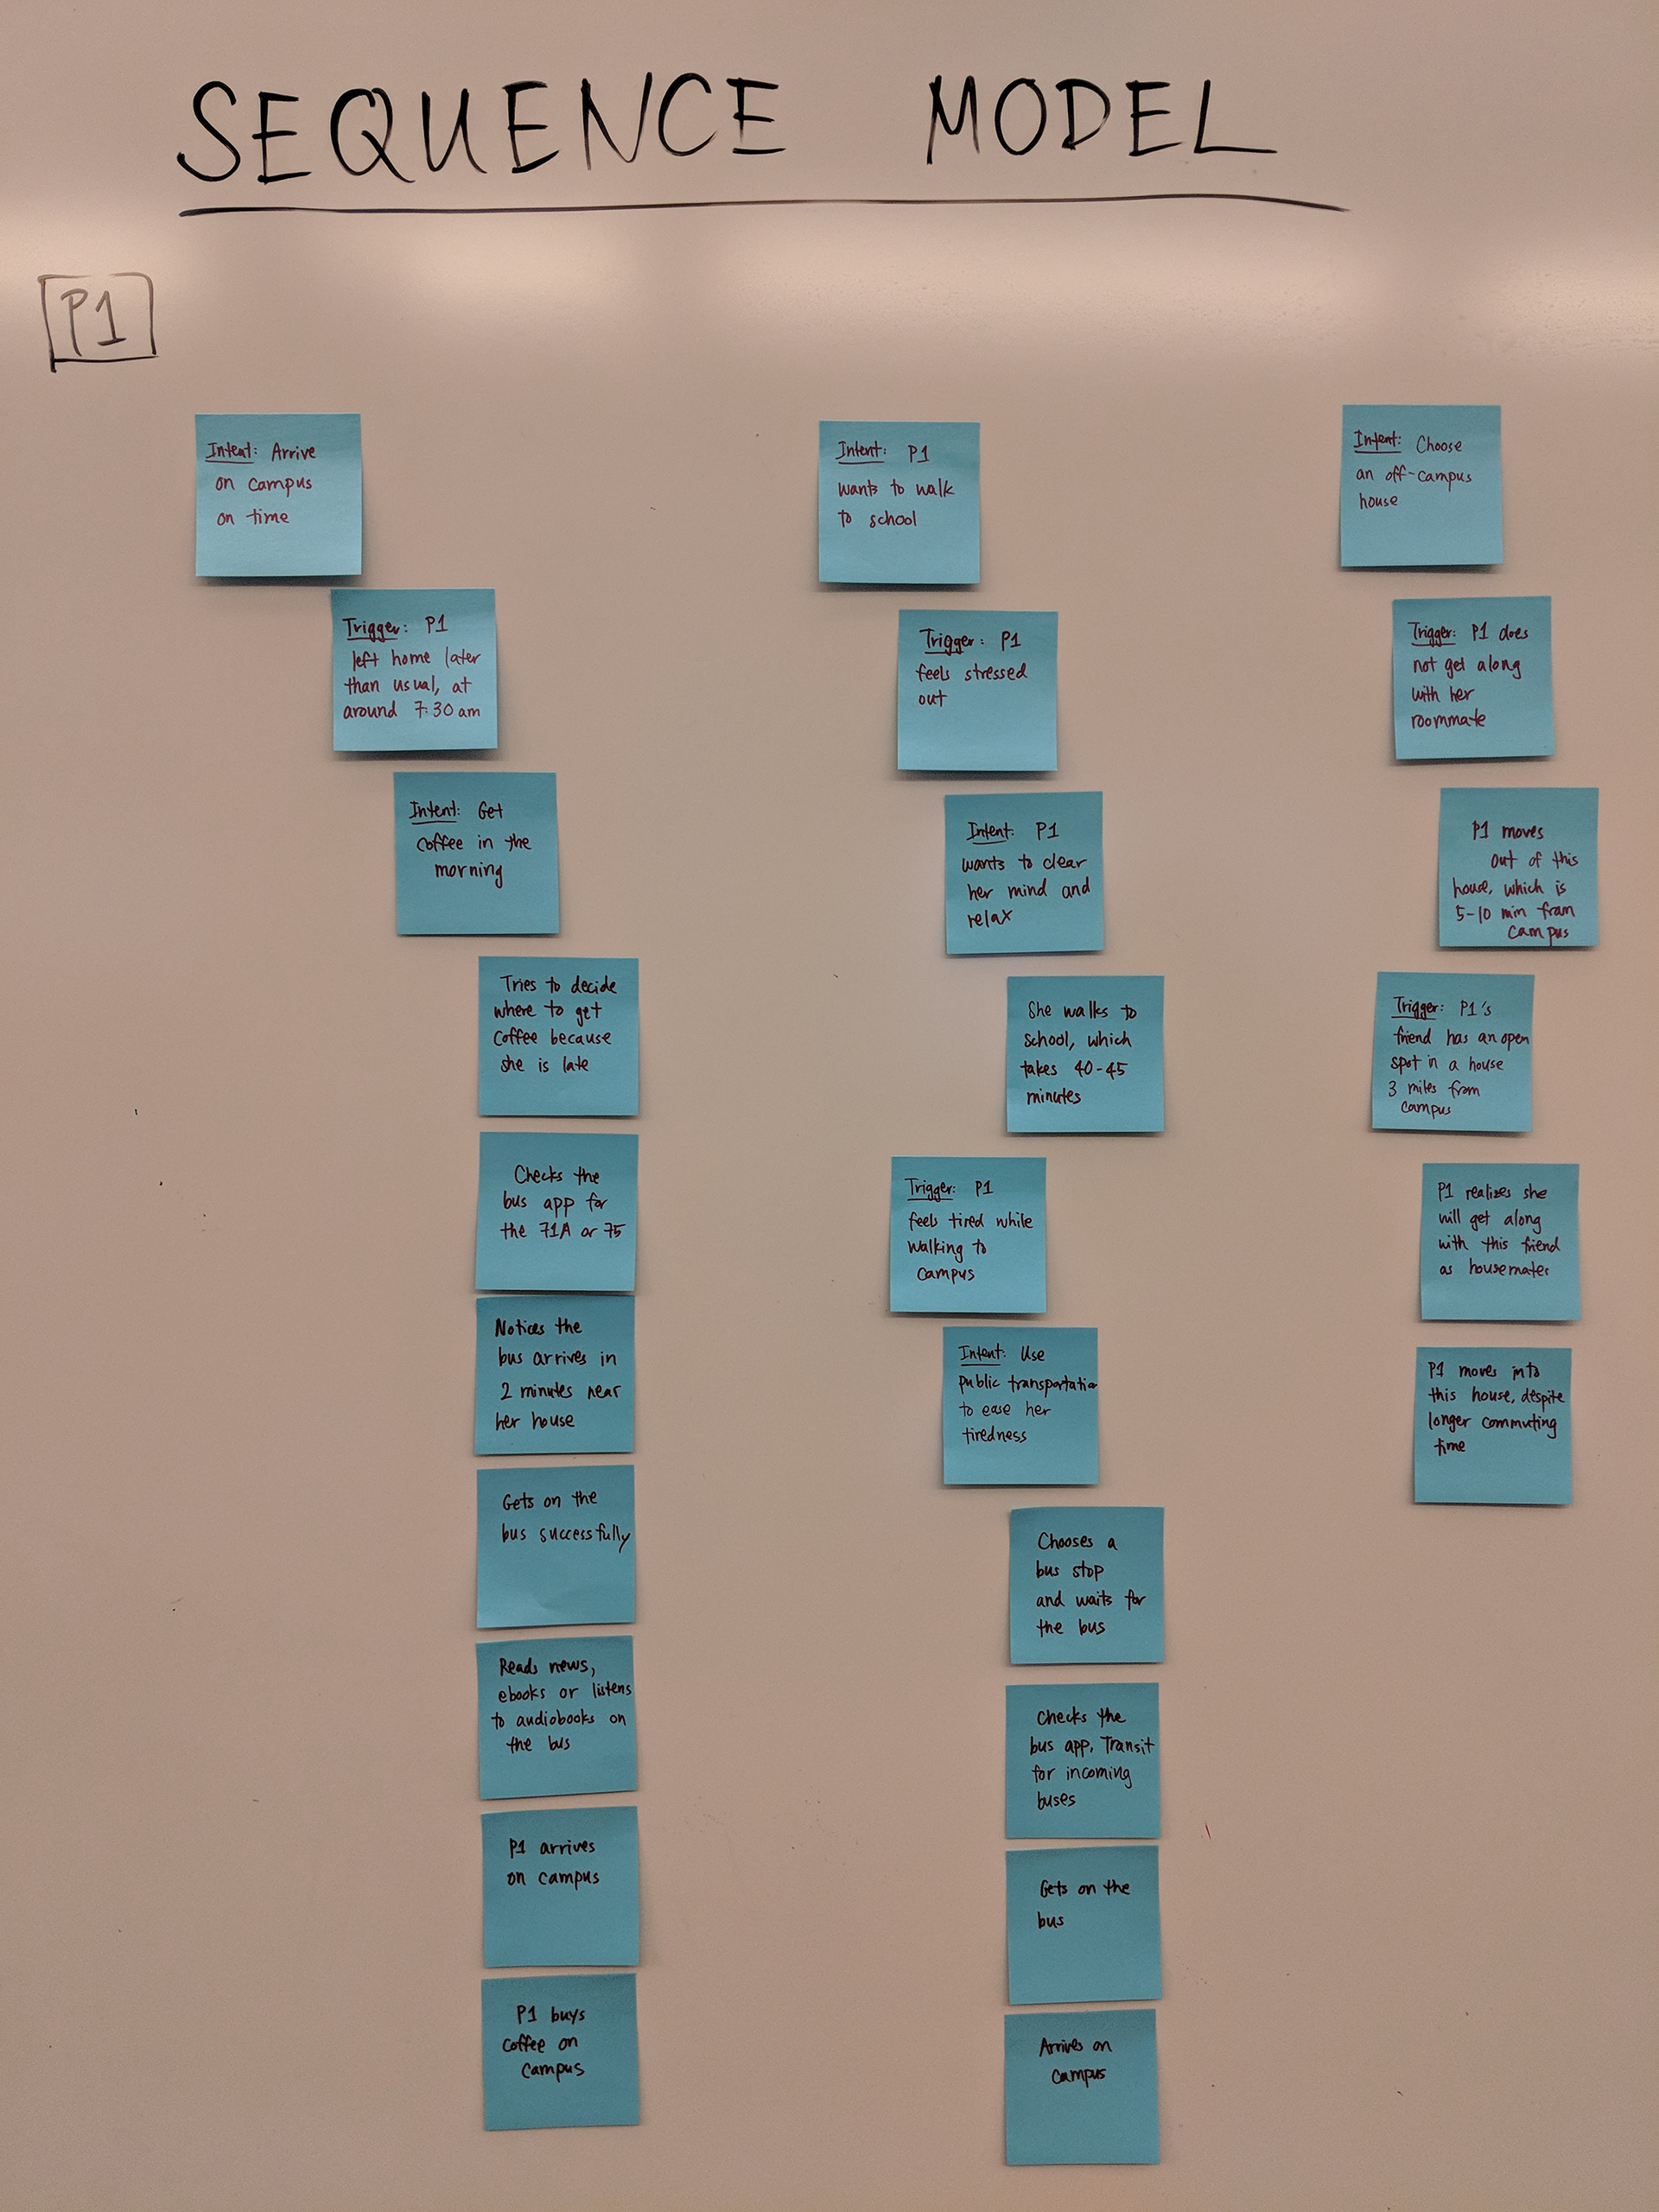 SEQUENCE MODEL
P1
Intent: Arrive
on campus
on time
Trigger: P1
left home later
than usual, at
around 7:30 am
Intent: Get
coffee in the
morning
Tries to decide
where to get
coffee because
she is late
Checks the
bus app for
the 71A or 75
Notices the
bus arrives in
2 minutes near
her house
Gets on the
bus successfully
Reads news,
ebooks or listens
to audiobooks on
the bus
P1 arrives
on campus
P1 buys
coffee on
campus
Intent: P1
wants to walk
to school
Trigger: P1
feels stressed
out
Intent: P1
wants to clear
her mind and
relax
She walks to
school, which
takes 40-45
minutes
Trigger: P1
feels tired while
walking to
campus
Intent: Use
public transportatio
to ease her
tiredness
Chooses a
bus stop
and waits for
the bus
Checks the
bus app, Transit
for incoming
buses
Gets on the
bus
Arrives on
campus
Intent: Choose
an off-campus
house
Trigger: P1 does
not get along
with her
roommate
P1 moves
out of this
house, which is
5-10 min from
campus
Trigger: P1's
friend has an open
spot in a house
3 miles from
campus
P1 realizes she
will get along
with this friend
as housemates
P1 moves into
this house, despite
longer commuting
time